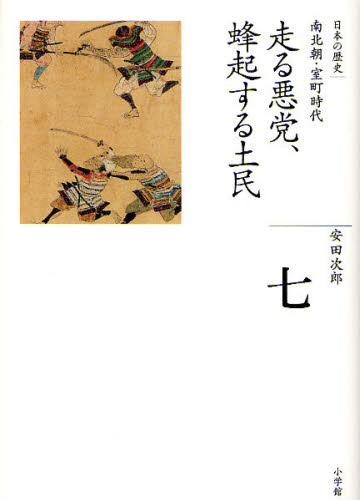 日本の歴史
南北朝・室町時代
走る悪党、
蜂起する土民
安田次郎
七
小学館